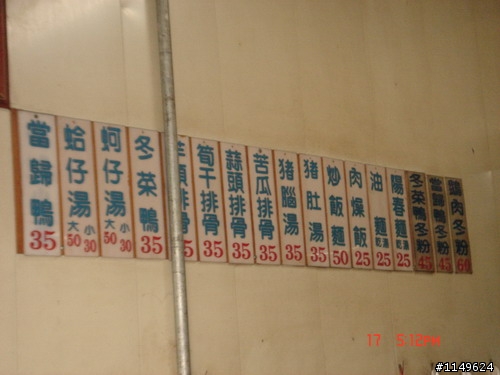 當歸鴨 35
蛤仔湯 大50 小30
蚵仔湯 大50 小30
冬菜鴨 35
頭排骨 35
筍干排骨 35
蒜頭排骨 35
苦瓜排骨 35
豬腦湯 35
豬肚湯 35
炒飯麵 50
肉燥飯 25
油麵 25
陽春麵 25
冬菜鴨冬粉 45
當歸鴨冬粉 45
鴨肉冬粉 60
17 5:12PM
#1149624